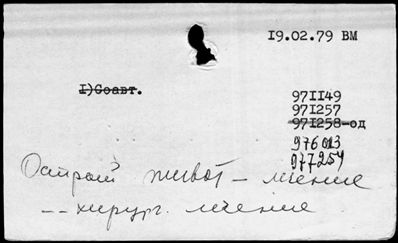 19.02.79 ВМ
I)Соавт.
97II49
97I257
97I258-од
976013
977254
Острый живот - лечение
-- хирург. лечение